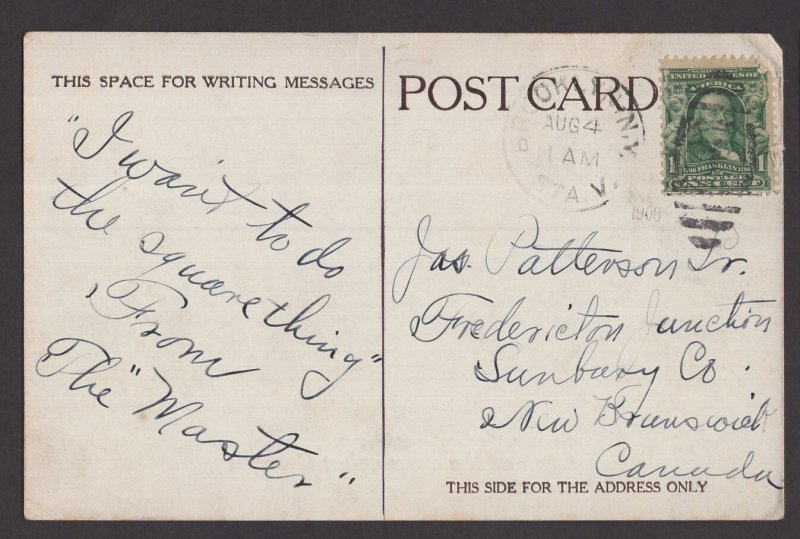 THIS SPACE FOR WRITING MESSAGES
"I want to do
the square thing"
From
The "Master"
POST CARD
BROOKLYN, N.Y.
AUG 4
1 AM
STA. V.
1908
UNITED STATES OF
AMERICA
1 1
POSTAGE
ONE CENT
Jas. Patterson Sr.
Fredericton Junction
Sunbury Co.
New Brunswick
Canada
THIS SIDE FOR THE ADDRESS ONLY